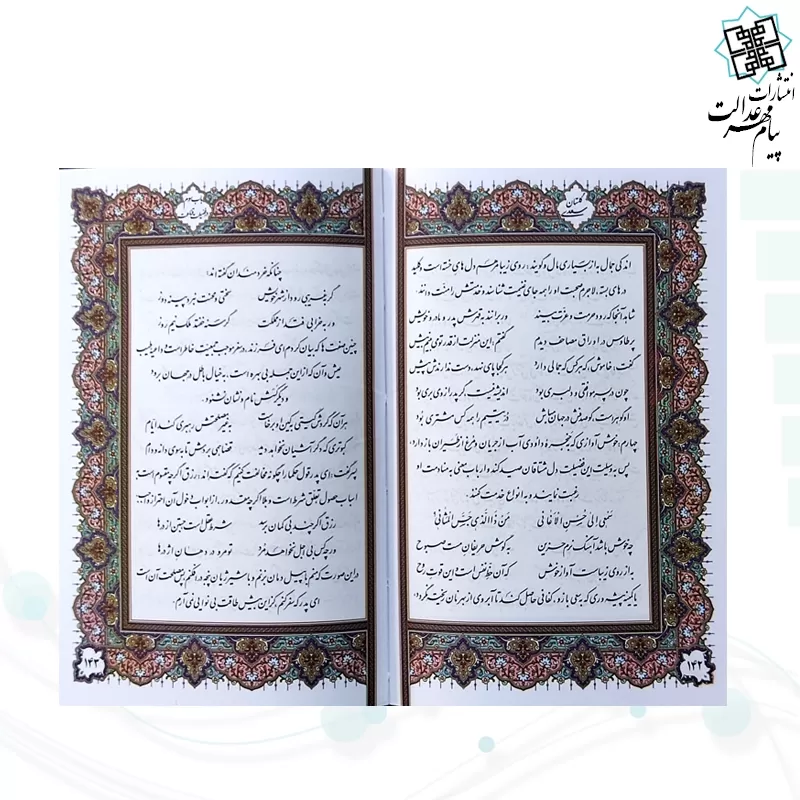 انتشارات
پیام مهر عدالت
گلستان
سعدی
اندکی جمال به از بسیاری مال و گویند: روی زیبا مرهم دل های خسته است و کلید
درهای بسته، لاجرم صحبت او را همه جای غنیمت شناسند و خدمتش را منت دانند.
شاهد آنجا که رود حرمت و عزت بیند ور برانند به قهرش پدر و مادر و خویش
پر طاوس در اوراق مصاحف دیدم گفتم: این منزلت از قدر تو می بینم بیش
گفت: خاموش! که هر کس که جمالی دارد هر کجا پای نهد، دست ندارندش پیش
چون در پسر موافقی و دلبری بود اندیشه نیست، گر پدر از وی بری بود
او گوهر است گو صدفش در جهان مباش در یتیم را همه کس مشتری بود
چهارم: خوش آوازی که به حنجره داودی آب از جریان و مرغ از طیران باز دارد،
پس به وسیلت این فضیلت دل مشتاقان صید کند و ارباب معنی به منادمت او
رغبت نمایند و به انواع خدمت کنند.
سَمعی اِلی حُسنِ الاَغانی مَن ذَا الَّذی جَسَّ المَثانی
چه خوش باشد آهنگ نرم حزین به گوش حریفان مست صبوح
به از روی زیباست آواز خوش که آن حظ نفس است و این قوت روح
یا کمینه پیشه وری که به سعی بازو، کفافی حاصل کند تا آبروی از بهر نان ریخته نگردد؛
۱۴۲
چنانکه خردمندان گفته اند:
گر به غریبی رود از شهر خویش سختی و محنت نبرد پینه دوز
ور به خرابی فتد از مملکت گرسنه خفتد ملک نیم روز
چنین صفت ها که بیان کردم ای فرزند، در سفر موجب جمعیت خاطر است و داعیه طیب
عیش و آن که از این جمله بی بهره است، به خیال باطل در جهان برود
و دیگر کسش نام و نشان نشنود.
هر آن که گردش گیتی به کین او برخاست به غیر مصلحتش رهبری کند ایام
کبوتری که دگر آشیان نخواهد دید قضا همی بردش تا به سوی دانه و دام
پسر گفت: ای پدر، قول حکما را چگونه مخالفت کنیم که گفته اند: رزق اگر چه مقسوم است به
اسباب حصول تعلق شرط است و بلا اگر چه مقدور، از ابواب دخول آن احتراز واجب.
رزق اگر چند بی گمان برسد شرط عقل است جستن از درها
ور چه کس بی اجل نخواهد مرد تو مرو در دهان اژدرها
در این صورت که منم با پیل دمان بزنم و با شیر ژیان پنجه در افکنم، پس مصلحت آن است
ای پدر که سفر کنم، کز این بیش طاقت بی نوایی نمی آرم.
۱۴۳